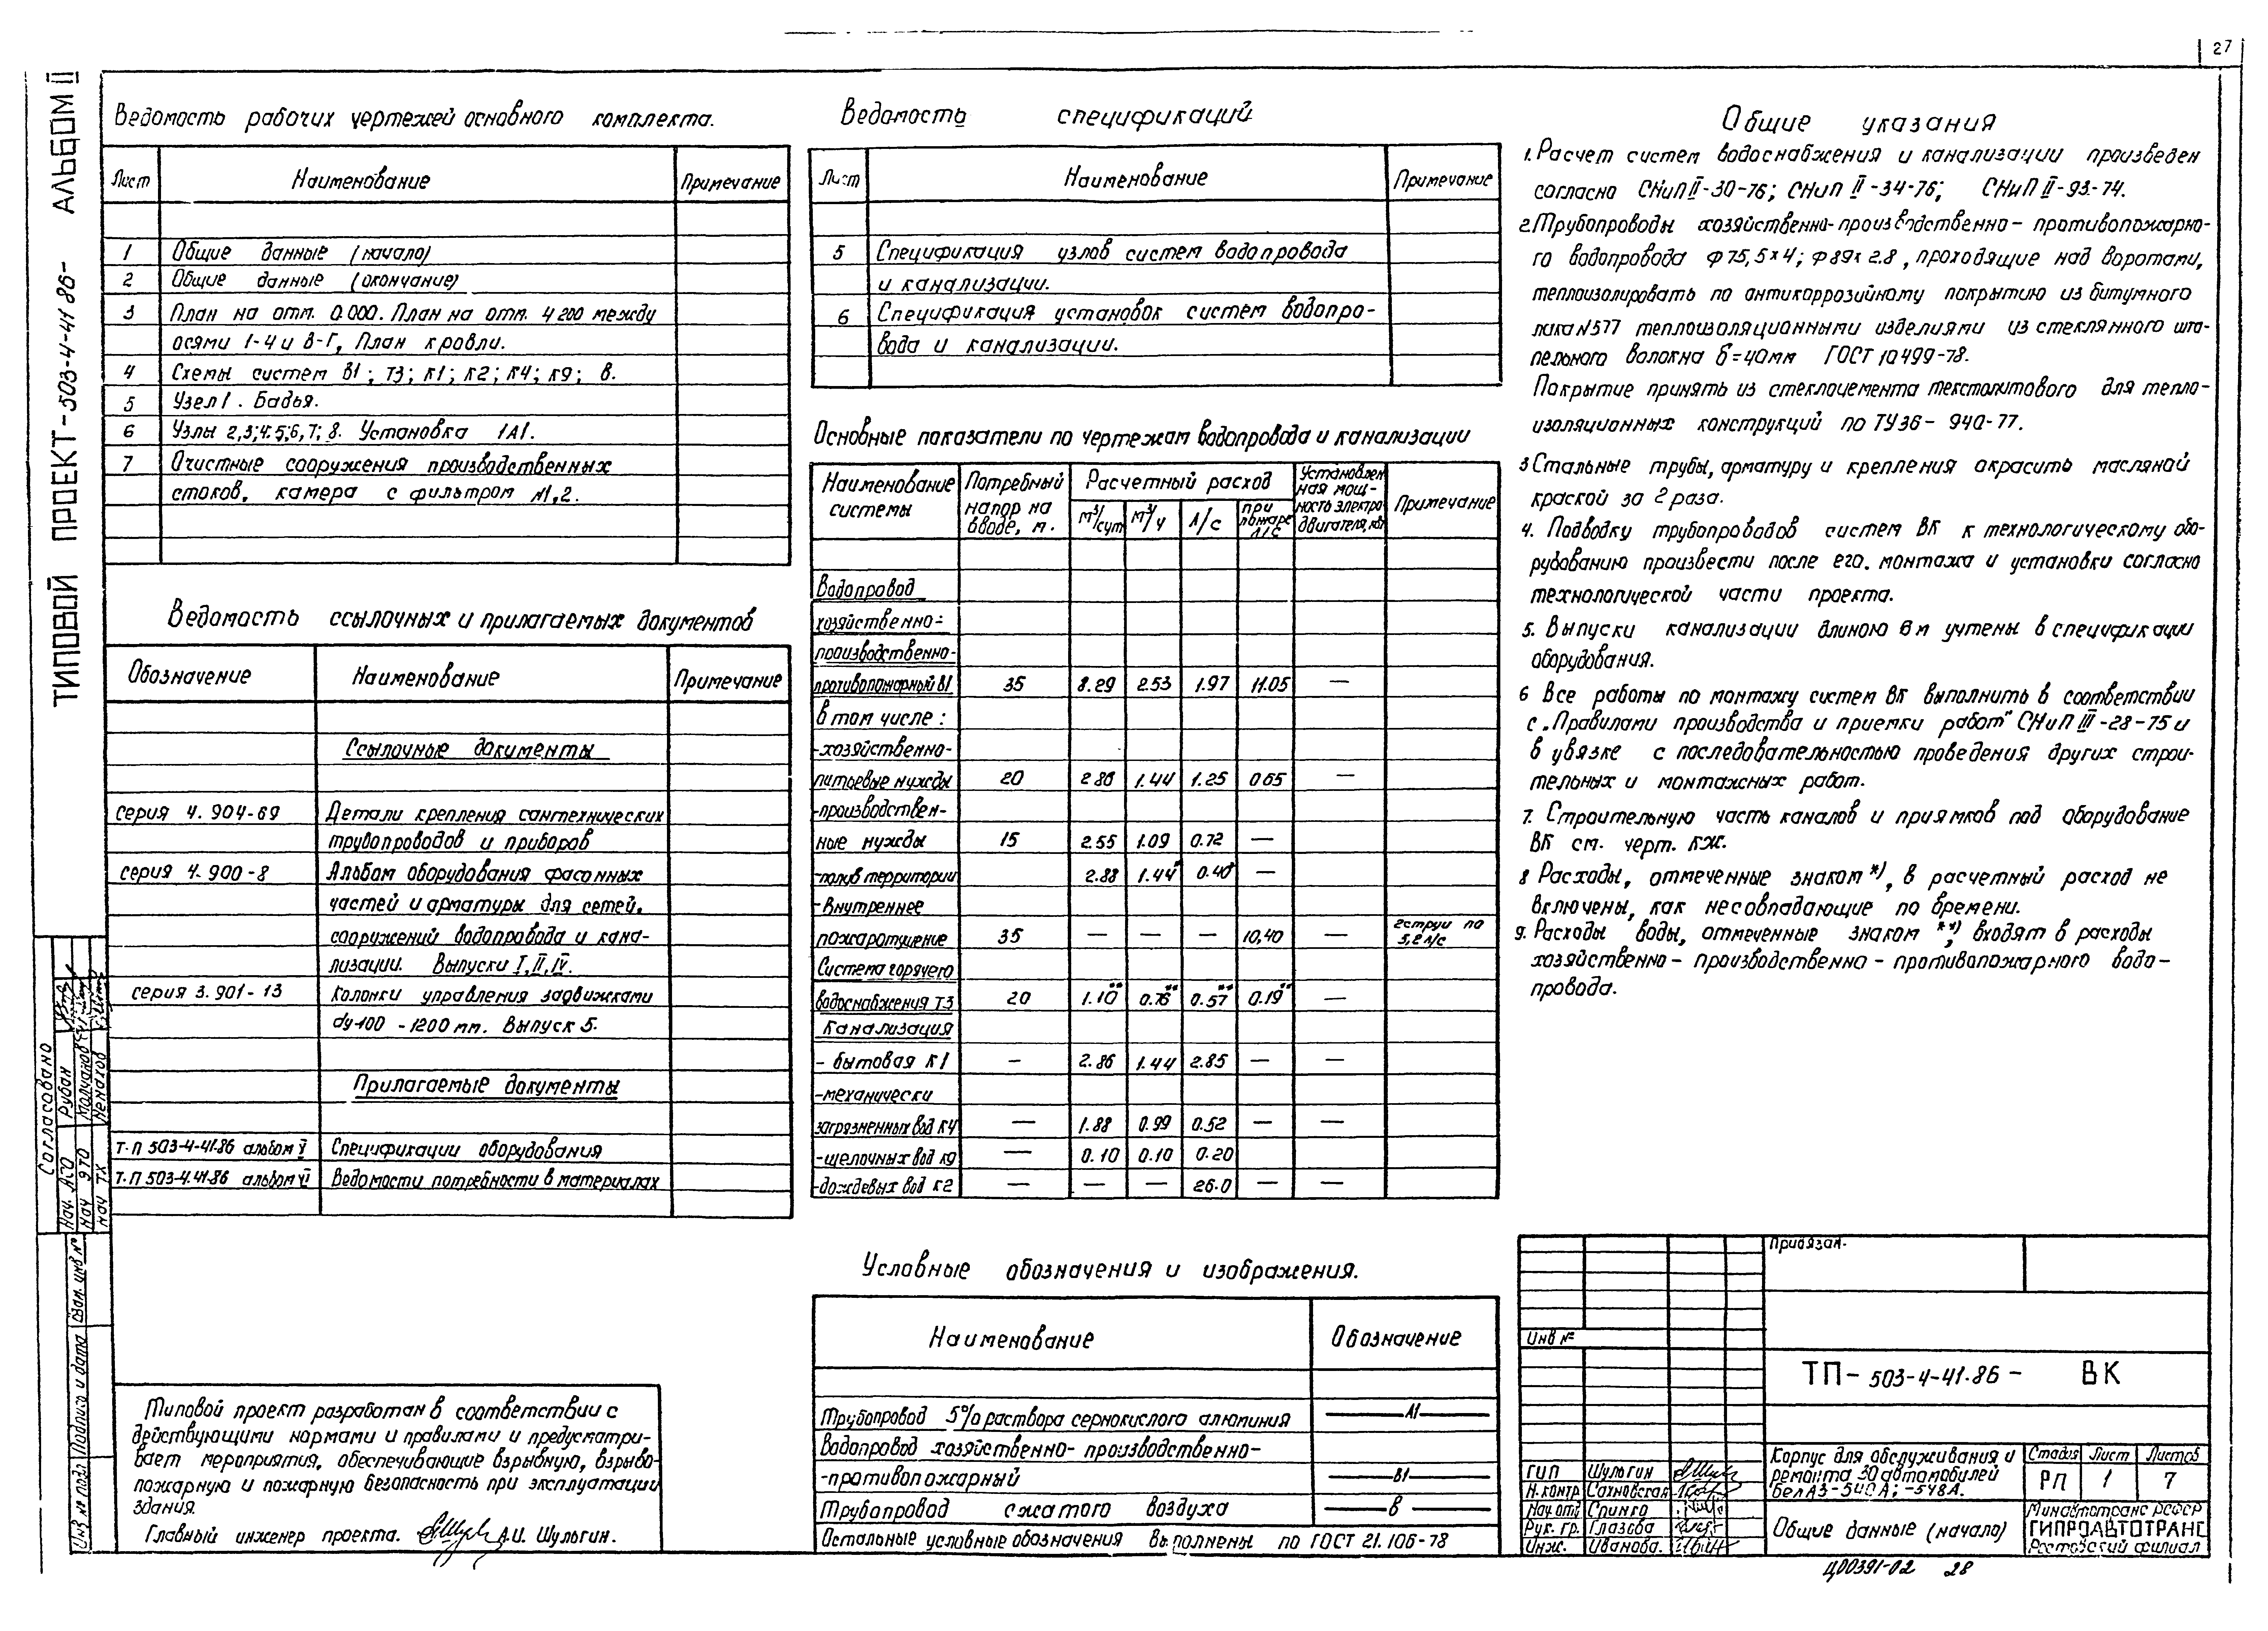 27
ТИПОВОЙ ПРОЕКТ-503-4-41 86- АЛЬБОМ II
Ведомость рабочих чертежей основного комплекта.
Лист Наименование Примечание
1 Общие данные (начало)
2 Общие данные (окончание)
3 План на отм. 0.000. План на отм. 4200 между
осями 1-4 и В-Г, План кровли.
4 Схемы систем В1; Т3; К1; К2; К4; К9; В.
5 Узел 1. Бадья.
6 Узлы 2,3;4;5;6,7; 8. Установка 1А1.
7 Очистные сооружения производственных
стоков, камера с фильтром №1,2.
Ведомость ссылочных и прилагаемых документов
Обозначение Наименование Примечание
Ссылочные документы
серия 4.904-69 Детали крепления сантехнических
трубопроводов и приборов
серия 4.900-8 Альбом оборудования фасонных
частей и арматуры для сетей,
сооружений водопровода и кана-
лизации. Выпуски I, II, IV.
серия 3.901-13 Колонки управления задвижками
dy-100 -1200мм. Выпуск 5.
Прилагаемые документы
Т.П 503-4-41.86 альбом V Спецификации оборудования
Т.П 503-4.41.86 альбом VI Ведомости потребности в материалах
Согласовано
Нач. АСО Рубан
Нач ЭТО Молчанов
Нач ТХ
Инв № подл Подпись и дата Взам. инв №
Типовой проект разработан в соответствии с
действующими нормами и правилами и предусматри-
вает мероприятия, обеспечивающие взрывную, взрыво-
пожарную и пожарную безопасность при эксплуатации
здания.
Главный инженер проекта. А.И. Шульгин.
Ведомость спецификаций
Лист Наименование Примечание
5 Спецификация узлов систем водопровода
и канализации.
6 Спецификация установок систем водопро-
вода и канализации.
Основные показатели по чертежам водопровода и канализации
Наименование системы Потребный напор на вводе, м. Расчетный расход Установлен ная мощ- ность электро двигателя, кВт Примечание
м³/сут м³/ч л/с при пожаре л/с
Водопровод
хозяйственно-
производственно-
противопожарный В1 35 8.29 2.53 1.97 11.05 —
в том числе:
-хозяйственно-
питьевые нужды 20 2.86 1.44 1.25 0.65 —
-производствен-
ные нужды 15 2.55 1.09 0.72 —
-полив территории 2.88 1.44* 0.40* —
-внутреннее
пожаротушение 35 — — — 10,40 — 2струи по 5,2 л/с
Система горячего
водоснабжения Т3 20 1.10** 0.76** 0.57** 0.19** —
Канализация
- бытовая К1 - 2.86 1.44 2.85 — —
-механически
загрязненных вод К4 — 1.88 0.99 0.52 — —
-щелочных вод К9 — 0.10 0.10 0.20
-дождевых вод К2 — — — 26.0 — —
Условные обозначения и изображения.
Наименование Обозначение
Трубопровод 5% раствора сернокислого алюминия А1
Водопровод хозяйственно-производственно-
-противопожарный В1
Трубопровод сжатого воздуха В
Остальные условные обозначения выполнены по ГОСТ 21.106-78
Общие указания
1. Расчет систем водоснабжения и канализации произведен
согласно СНиП II-30-76; СНиП II-34-76; СНиП II-93-74.
2. Трубопроводы хозяйственно-производственно-противопожарно-
го водопровода ф 75,5×4; ф 89×2.8, проходящие над воротами,
теплоизолировать по антикоррозийному покрытию из битумного
лака №577 теплоизоляционными изделиями из стеклянного шта-
пельного волокна δ=40мм ГОСТ 10499-78.
Покрытие принять из стеклоцемента текстолитового для тепло-
изоляционных конструкций по ТУ36-940-77.
3 Стальные трубы, арматуру и крепления окрасить масляной
краской за 2 раза.
4. Подводку трубопроводов систем ВК к технологическому обо-
рудованию произвести после его. монтажа и установки согласно
технологической части проекта.
5. Выпуски канализации длиною 8м учтены в спецификации
оборудования.
6 Все работы по монтажу систем ВК выполнить в соответствии
с „Правилами производства и приемки работ" СНиП III-28-75 и
в увязке с последовательностью проведения других строи-
тельных и монтажных работ.
7. Строительную часть каналов и приямков под оборудование
ВК см. черт. КЖ.
8 Расходы, отмеченные знаком *), в расчетный расход не
включены, как несовпадающие по времени.
9. Расходы воды, отмеченные знаком **), входят в расходы
хозяйственно-производственно-противопожарного водо-
провода.
Привязан.
Инв №
ТП-503-4-41.86- ВК
ГИП Шульгин
Н.контр Сахновская
Нач отд Спинго
Рук. гр. Глазева
Инж. Иванова.
Корпус для обслуживания и
ремонта 30 автомобилей
БелАЗ-540А; -548А.
Стадия Лист Листов
РП 1 7
Общие данные (начало)
Минавтотранс РСФСР
ГИПРОАВТОТРАНС
Ростовский филиал
Ц00391-02 28